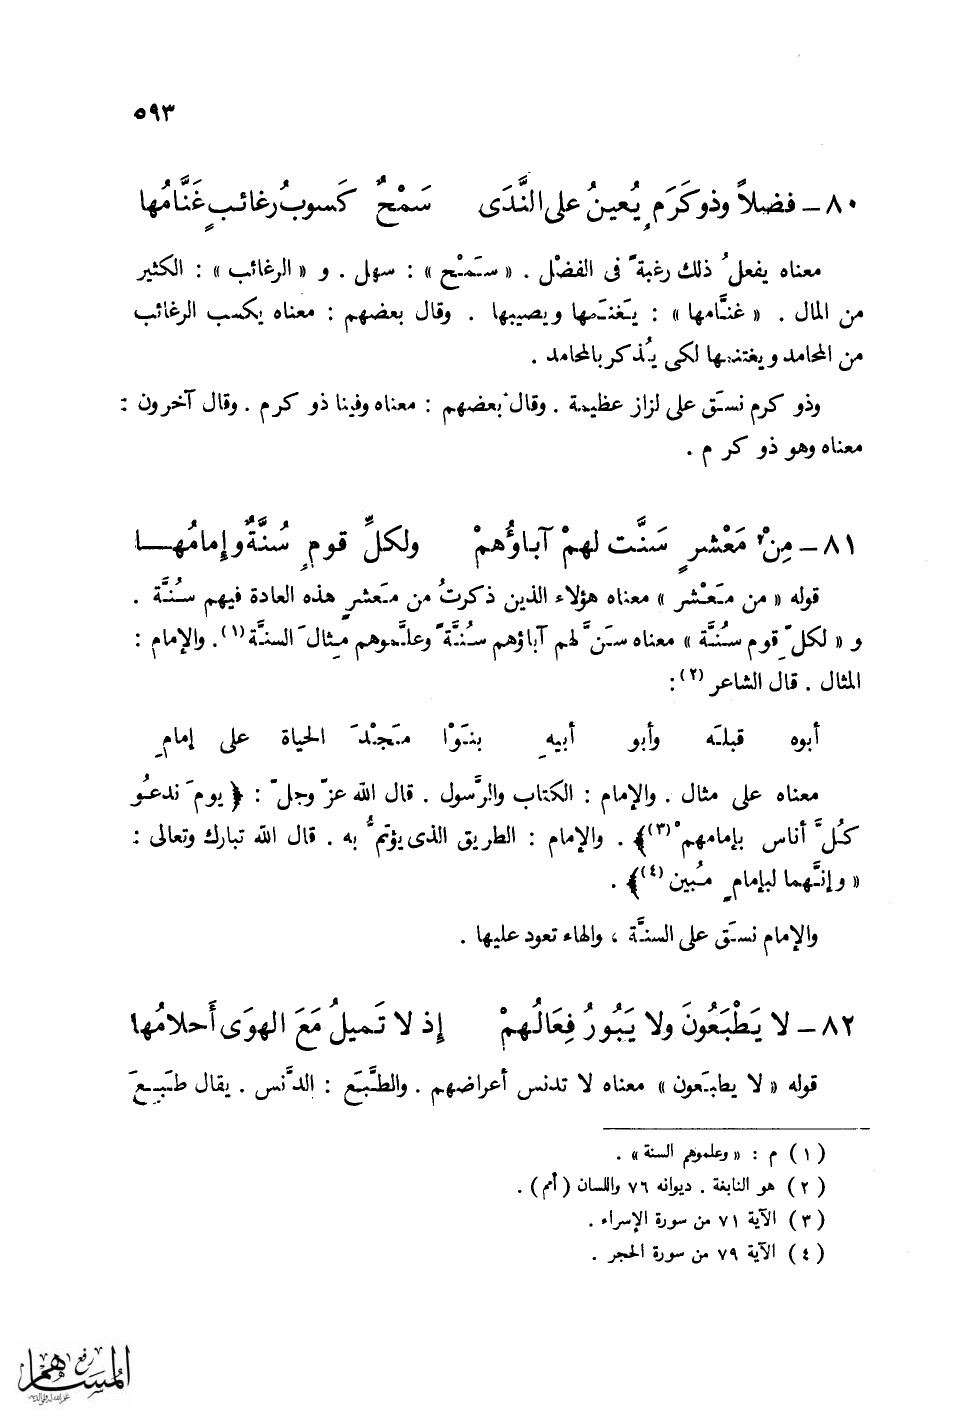 ٥٩٣
٨٠ – فضلاً وذو كَرَمٍ يُعينُ على النَّدَى سَمْحٌ كَسوبُ رغائبٍ غَنَّامُها
معناه يفعلُ ذلك رغبةً فى الفضْل . « سَمْح » : سهل . و « الرغائب » : الكثير
من المال . « غنَّامها » : يَغنَمها ويصيبها . وقال بعضهم : معناه يكسب الرغائب
من المحامد ويغتنمها لكى يُذكر بالمحامد .
وذو كرم نسَق على لزاز عظيمة . وقال بعضهم : معناه وفينا ذو كرم . وقال آخرون :
معناه وهو ذو كرم .
٨١ – مِنْ مَعْشرٍ سَنَّت لهمْ آباؤُهمْ ولكلِّ قومٍ سُنَّةٌ وإمامُهـا
قوله « من مَعْشر » معناه هؤلاء الذين ذكرتُ من مَعشرٍ هذه العادة فيهم سُنَّة .
و « لكلِّ قوم سُنَّة » معناه سَنَّ لهم آباؤهم سُنَّةً وعلَّموهم مِثالَ السنَّة (١). والإمام :
المثال . قال الشاعر (٢):
أبوه قبلَه وأبو أبيهِ بنَوْا مَجْدَ الحياة على إمامِ
معناه على مثال . والإمام : الكتاب والرَّسول . قال الله عزّ وجلّ : ﴿ يومَ ندعُو
كُلَّ أناس بإمامهمْ (٣)﴾ . والإمام : الطريق الذى يؤتمُّ به . قال الله تبارك وتعالى :
« وإنَّهما لبإمامٍ مُبين (٤)﴾ .
والإمام نسَق على السنَّة ، والهاء تعود عليها .
٨٢ – لا يَطْبَعُونَ ولا يَبُورُ فِعَالُهمْ إذ لا تَميلُ مَعَ الهوَى أحلامُها
قوله « لا يطبَعون » معناه لا تدنس أعراضهم . والطَّبَع : الدَّنس . يقال طَبِعَ
(١) م : « وعلموهم السنة » .
(٢) هو النابغة . ديوانه ٧٦ واللسان (أمم) .
(٣) الآية ٧١ من سورة الإسراء .
(٤) الآية ٧٩ من سورة الحجر .